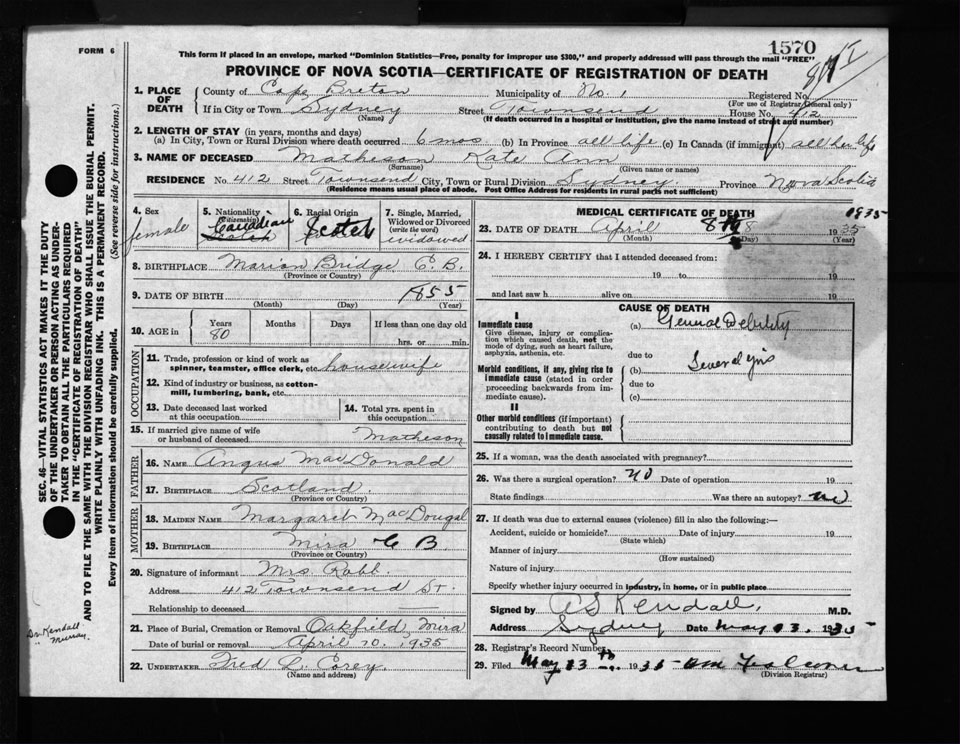 FORM 6
This form if placed in an envelope, marked "Dominion Statistics—Free, penalty for improper use $300," and properly addressed will pass through the mail "FREE"
1570
PROVINCE OF NOVA SCOTIA—CERTIFICATE OF REGISTRATION OF DEATH
1. PLACE OF DEATH
County of Cape Breton Municipality of No. 1 Registered No.
(For use of Registrar General only)
If in City or Town Sydney Street Townsend House No. 412
(Name) (If death occurred in a hospital or institution, give the name instead of street and number)
2. LENGTH OF STAY (in years, months and days)
(a) In City, Town or Rural Division where death occurred 6 mos (b) In Province all life (c) In Canada (if immigrant) all her life
3. NAME OF DECEASED Matheson Kate Ann
(Surname) (Given name or names)
RESIDENCE No. 412 Street Townsend City, Town or Rural Division Sydney Province Nova Scotia
(Residence means usual place of abode. Post Office Address for residents in rural parts not sufficient)
4. Sex female
5. Nationality (Citizenship) Canadian Scotch
6. Racial Origin Scotch
7. Single, Married, Widowed or Divorced (write the word) widowed
8. BIRTHPLACE Marion Bridge C.B.
(Province or Country)
9. DATE OF BIRTH 1855
(Month) (Day) (Year)
10. AGE in Years 80 Months Days If less than one day old
hrs. or min.
OCCUPATION
11. Trade, profession or kind of work as spinner, teamster, office clerk, etc. housewife
12. Kind of industry or business, as cotton-mill, lumbering, bank, etc.
13. Date deceased last worked at this occupation
14. Total yrs. spent in this occupation
15. If married give name of wife or husband of deceased Matheson
FATHER
16. NAME Angus MacDonald
17. BIRTHPLACE Scotland
(Province or Country)
MOTHER
18. MAIDEN NAME Margaret MacDougal
19. BIRTHPLACE Mira C B
(Province or Country)
20. Signature of informant Mrs Robb
Address 412 Townsend St.
Relationship to deceased
21. Place of Burial, Cremation or Removal Oakfield, Mira
Date of burial or removal April 10, 1935
22. UNDERTAKER Fred L. Corey
(Name and address)
MEDICAL CERTIFICATE OF DEATH
1935
23. DATE OF DEATH April 8th 8 1935
(Month) (Day) (Year)
24. I HEREBY CERTIFY that I attended deceased from:
19 to 19
and last saw h alive on 19
CAUSE OF DEATH
I
Immediate cause
Give disease, injury or complication which caused death, not the mode of dying, such as heart failure, asphyxia, asthenia, etc.
(a) General Debility
due to
Several yrs
Morbid conditions, if any, giving rise to immediate cause (stated in order proceeding backwards from immediate cause).
(b)
due to
(c)
II
Other morbid conditions (if important) contributing to death but not causally related to immediate cause.
25. If a woman, was the death associated with pregnancy?
26. Was there a surgical operation? no Date of operation 19
State findings Was there an autopsy? no
27. If death was due to external causes (violence) fill in also the following:—
Accident, suicide or homicide? Date of injury 19
(State which)
Manner of injury
(How sustained)
Nature of injury
Specify whether injury occurred in industry, in home, or in public place
Signed by A S Kendall, M.D.
Address Sydney Date May 03. 1935
28. Registrar's Record Number
29. Filed May 03 th 1935
(Division Registrar)
SEC. 46—VITAL STATISTICS ACT MAKES IT THE DUTY
OF THE UNDERTAKER OR PERSON ACTING AS UNDER-
TAKER TO OBTAIN ALL THE PARTICULARS REQUIRED
IN THE "CERTIFICATE OF REGISTRATION OF DEATH"
AND TO FILE THE SAME WITH THE DIVISION REGISTRAR WHO SHALL ISSUE THE BURIAL PERMIT.
WRITE PLAINLY WITH UNFADING INK. THIS IS A PERMANENT RECORD.
Every item of information should be carefully supplied. (See reverse side for instructions.)
Dr Kendall
" Murray